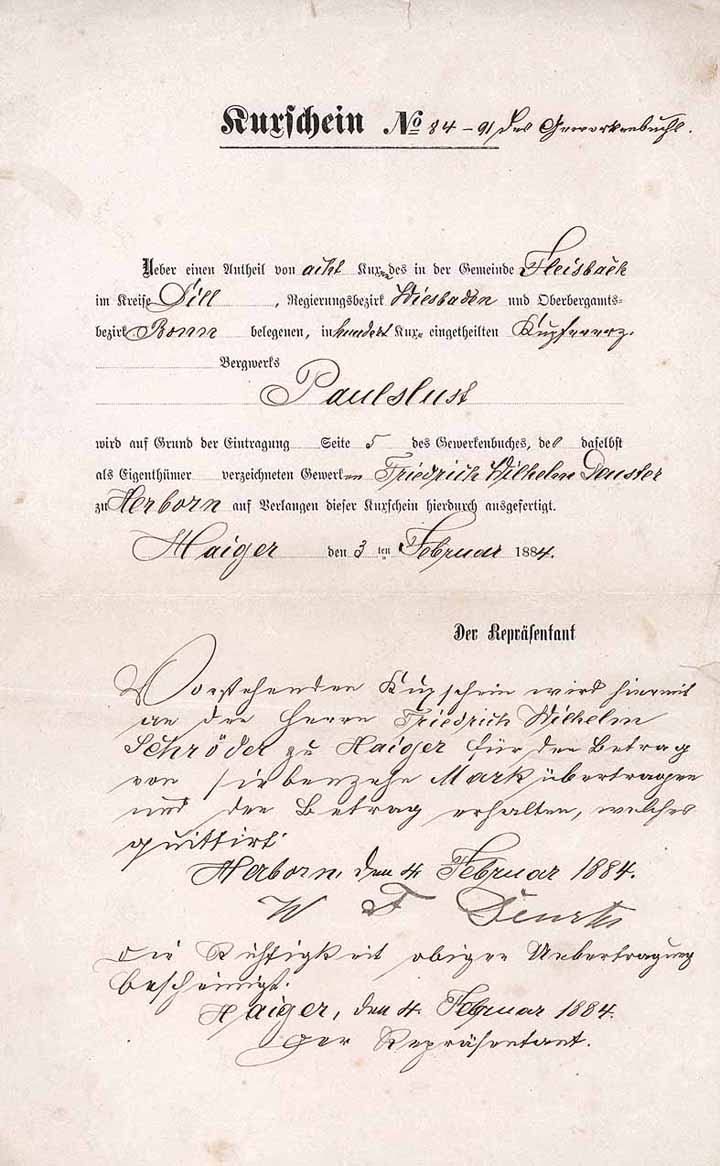 Kuxschein No 84 - 91 des Gewerkenbuchs.
Ueber einen Antheil von acht Kuxen des in der Gemeinde Fleisbach
im Kreise Dill, Regierungsbezirk Wiesbaden und Oberbergamts-
bezirk Bonn belegenen, in hundert Kuxe eingetheilten Kupfererz-
Bergwerks
Paulslust
wird auf Grund der Eintragung Seite 5 des Gewerkenbuches, des daselbst
als Eigenthümer verzeichneten Gewerken Friedrich Wilhelm Deuster
zu Herborn auf Verlangen dieser Kuxschein hierdurch ausgefertigt.
Haiger den 3ten Februar 1884.
Der Repräsentant
Vorstehenden Kuxschein wird hiermit
an den Herrn Friedrich Wilhelm
Schröder zu Haiger für den Betrag
von siebenzehn Mark übertragen
und den Betrag erhalten, welches
quittirt
Herborn, den 4. Februar 1884.
W F Deuster
Die Richtigkeit obiger Uebertragung
bescheinigt.
Haiger, den 4. Februar 1884.
Der Repräsentant.